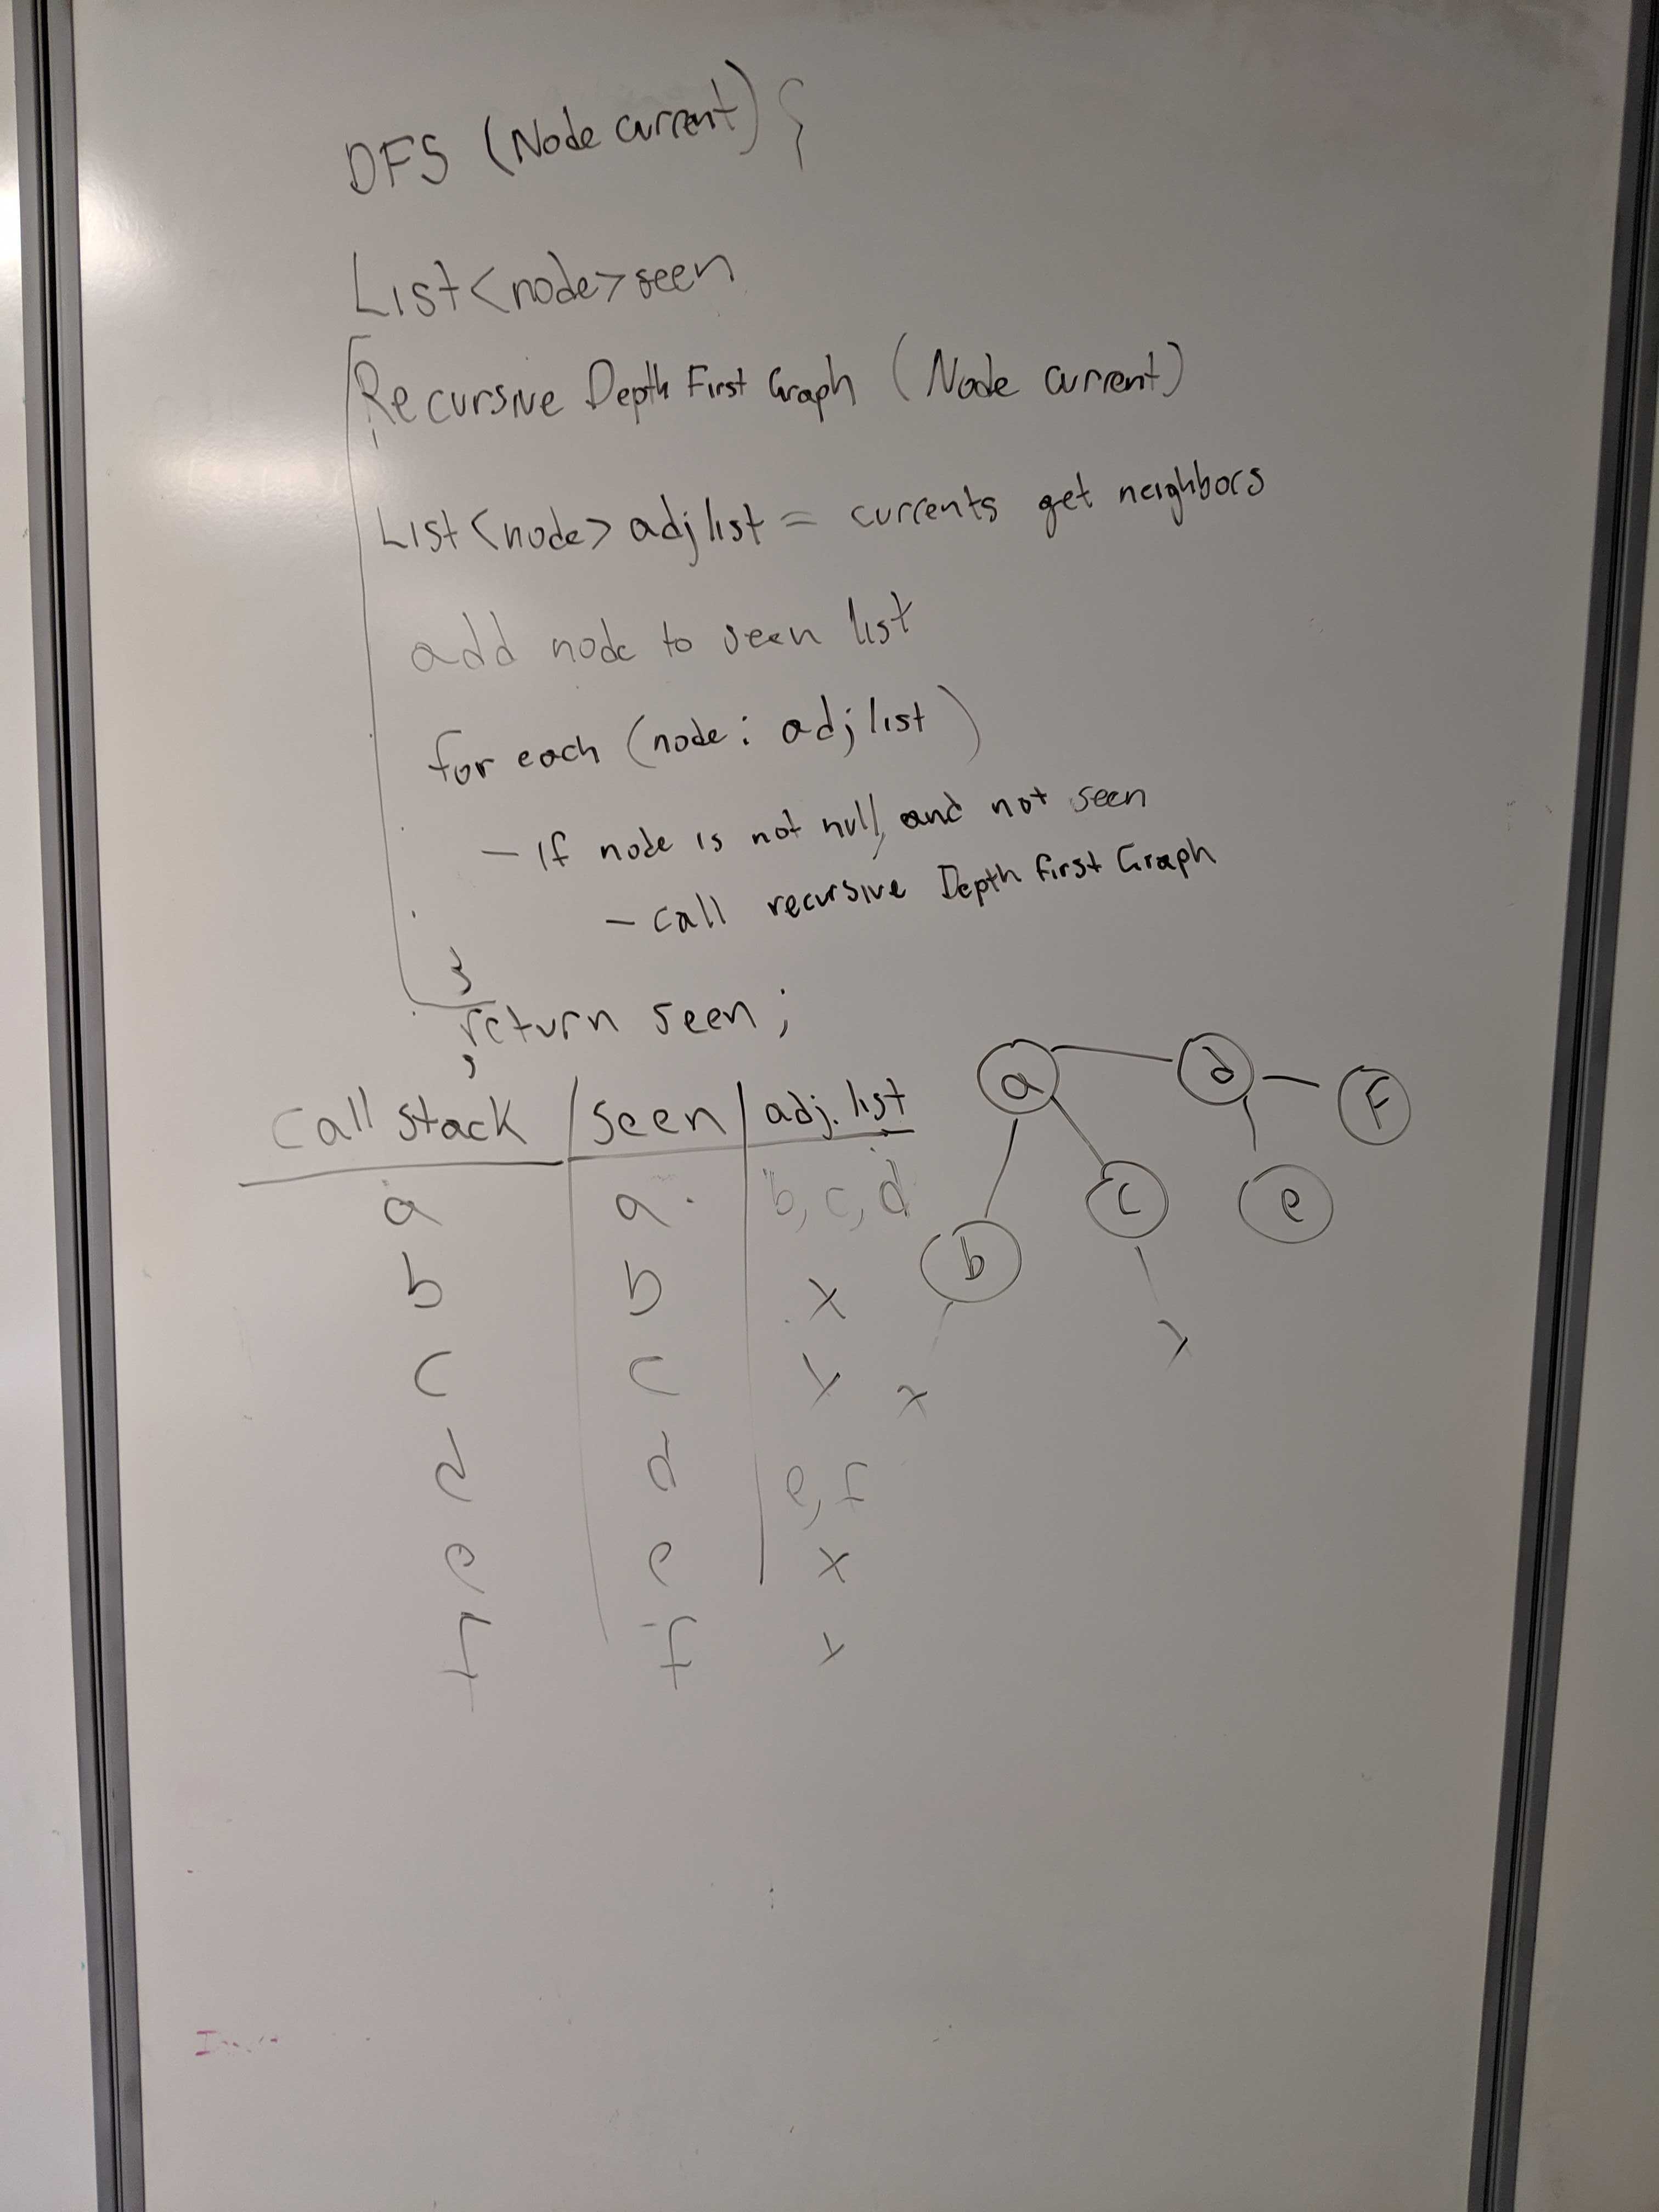 DFS (Node current) {
List<node> seen
Recursive Depth First Graph (Node current)
List<node> adj list = currents get neighbors
add node to seen list
for each (node : adj list)
- If node is not null, and not seen
- call recursive Depth first Graph
}
return seen;
}
Call stack | seen | adj. list
a a b, c, d
b b x
c c x
d d e, f
e e x
f f x
a d F
c e
b
x
x